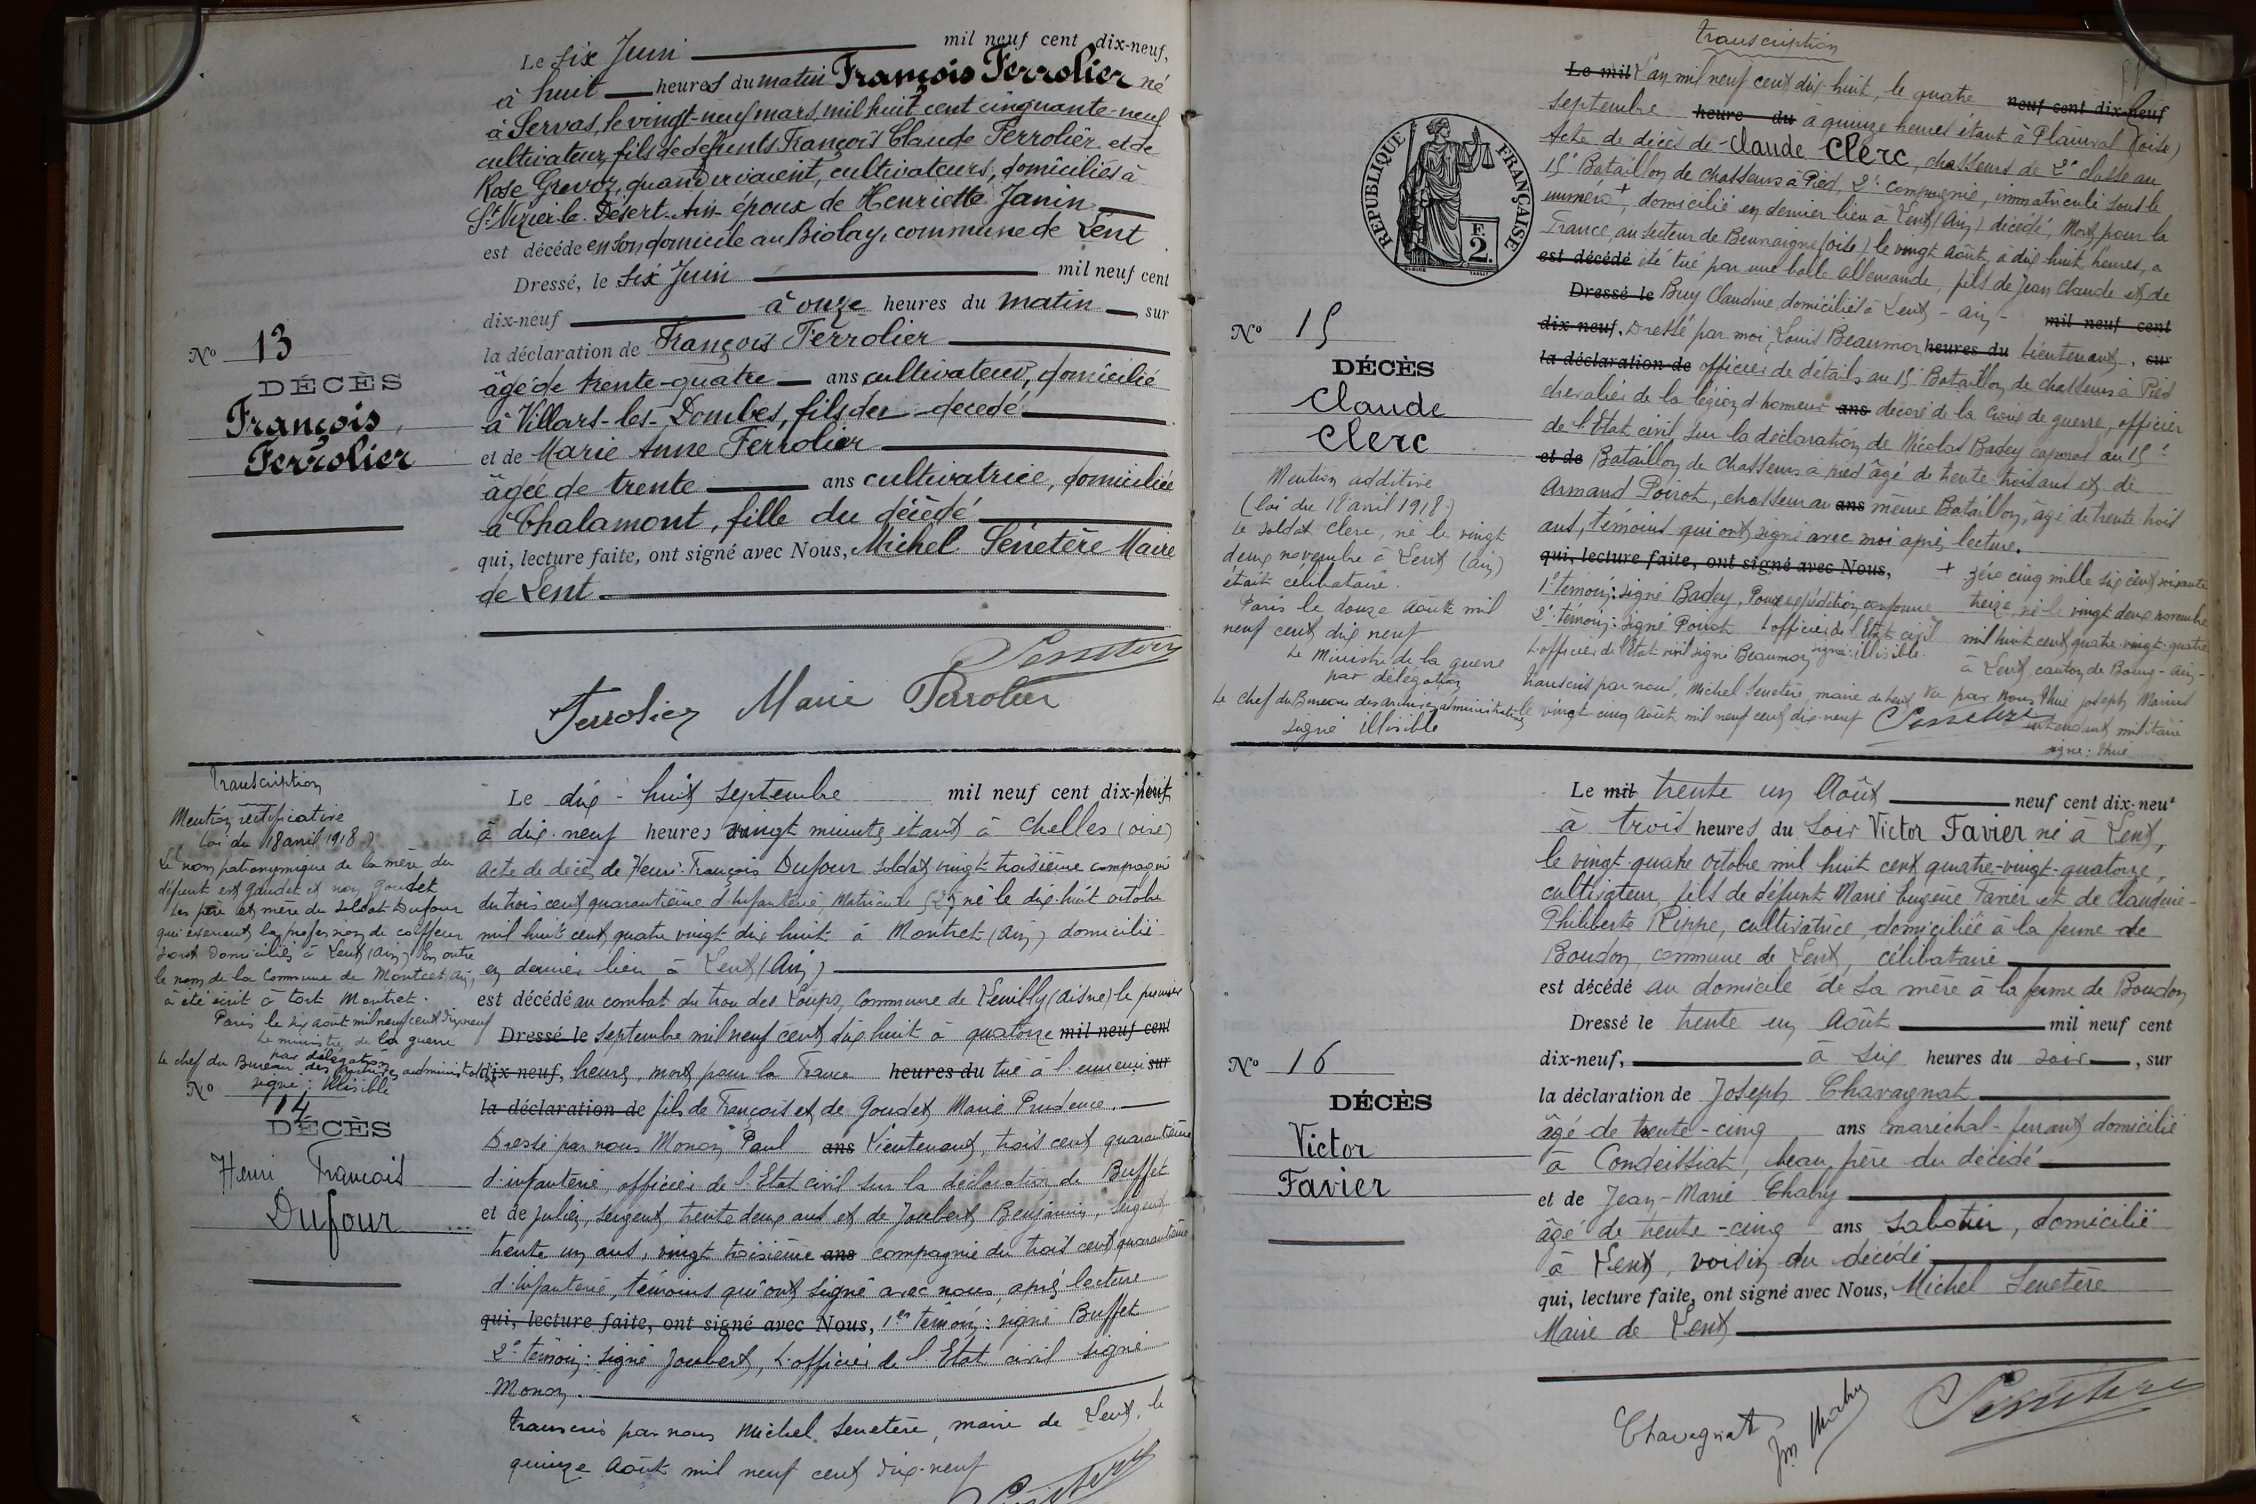 Le six Juin mil neuf cent dix-neuf,
à huit heures du matin François Ferrolier né
à Servas, le vingt-neuf mars mil huit cent cinquante-neuf
cultivateur, fils de défunts François Claude Ferrolier et de
Rose Grevoz, quand vivaient, cultivateurs, domiciliés à
St Nizier-le-Désert-Ain époux de Henriette Janin
est décédé en son domicile au Biolay, commune de Lent
Dressé, le six Juin mil neuf cent
dix-neuf à onze heures du matin, sur
la déclaration de François Ferrolier
âgé de trente-quatre ans cultivateur, domicilié
à Villars-les-Dombes, fils du décédé
et de Marie Anne Ferrolier
âgée de trente ans cultivatrice, domiciliée
à Chalamont, fille du décédé
qui, lecture faite, ont signé avec Nous, Michel Sénetère Maire
de Lent.
Ferrolier Marie Ferrolier
Senetère
No 13
DÉCÈS
François
Ferrolier
Transcription
Mention rectificative
Loi du 18 avril 1918
Le nom patronymique de la mère du
défunt est Gaudet et non Goudet
Les père et mère du soldat Dufour
qui exercent la profession de coiffeur
sont domiciliés à Lent (Ain) En outre
le nom de la Commune de Montcet Ain,
à été écrit à tort Montret.
Paris le six août mil neuf cent dix neuf
Le ministre de la guerre
par délégation
Le chef du Bureau des archives administratives
signé : illisible
No 14
DÉCÈS
Henri François
Dufour
Le dix-huit septembre mil neuf cent dix-huit
à dix-neuf heures vingt minutes étant à Chelles (oise)
Acte de décès de Henri François Dufour soldat vingt-troisième compagnie
du trois cent quarantième d'Infanterie, Matricule né le dix-huit octobre
mil huit cent quatre vingt dix huit à Montret (Ain) domicilié
en dernier lieu à Lent (Ain)
est décédé au combat du trou des Loups, Commune de Leuilly (aisne) le premier
Dressé le septembre mil neuf cent dix huit à quatorze mil neuf cent
dix-neuf, heures, mort pour la France heures du tué à l'ennemi sur
la déclaration de fils de François et de Goudet Marie Prudence.
Dressé par nous Monon Paul ans Lieutenant, trois cent quarantième
d'infanterie, officier de l'Etat civil sur la déclaration de Buffet
et de Julien, sergent, trente deux ans et de Joubert Benjamin, sergent
trente un ans, vingt troisième ans compagnie du trois cent quarantième
d'Infanterie, témoins qui ont signé avec nous, après lecture
qui, lecture faite, ont signé avec Nous, 1er témoin : signé Buffet
2e témoin : signé Joubert, L'officier de l'Etat civil signé
Monon.
Transcris par nous Michel Senetère, maire de Lent, le
quinze Août mil neuf cent dix-neuf
transcription
Le mil L'an mil neuf cent dix-huit, le quatre neuf cent dix-neuf
septembre heure du à quinze heures étant à Plainval (oise)
Acte de décès de Claude Clerc, chasseurs de 2e classe au
15e Bataillon de chasseurs à Pied, 2e compagnie, immatriculé sous le
numéro +, domicilié en dernier lieu à Lent (Ain) décédé, Mort pour la
France, au secteur de Beuvraignes (oise) le vingt août, à dix huit heures, a
est décédé été tué par une balle allemande, fils de Jean Claude et de
Dressé le Buy Claudine, domiciliés à Lent - ain - mil neuf cent
dix-neuf, Dressé par moi, Louis Beaumon heures du Lieutenant, sur
la déclaration de officier de détails au 15e Bataillon de chasseurs à Pied
chevalier de la légion d'honneur ans décoré de la Croix de guerre, officier
de l'Etat civil sur la déclaration de Nicolas Badey caporal au 15e
et de Bataillon de Chasseurs à pied âgé de trente trois ans et de
Armand Poirot, chasseur au ans même Bataillon, âgé de trente trois
ans, témoins qui ont signé avec moi après lecture.
qui, lecture faite, ont signé avec Nous,
+ zéro cinq mille six cent soixante
treize, né le vingt deux novembre
mil huit cent quatre-vingt-quatre
à Lent, canton de Bourg - Ain -
1e témoin : signé Badey, Pour expédition conforme
2e témoin : signé Poirot L'officier de l'Etat civil
L'officier de l'Etat civil signé Beaumon signé : illisible.
Vu par Nous Thué joseph Marius
intendant militaire
signé : Thué
transcris par nous, Michel Senetère, maire de Lent
le vingt-cinq Août mil neuf cent dix-neuf Senetère
RÉPUBLIQUE FRANÇAISE
F.
2.
No 15
DÉCÈS
Claude
Clerc
Mention additive
(loi du 18 avril 1918)
Le soldat Clerc, né le vingt
deux novembre à Lent (Ain)
était célibataire.
Paris le douze Août mil
neuf cent dix neuf
Le Ministre de la guerre
par délégation
Le chef du Bureau des archives administratives
signé illisible
Le mil trente un Août neuf cent dix-neuf
à trois heures du soir Victor Favier né à Lent,
le vingt-quatre octobre mil huit cent quatre-vingt-quatorze,
cultivateur, fils de défunt Marie Eugène Favier et de Claudine-
Philiberte Rippe, cultivatrice, domiciliée à la ferme de
Boudon, commune de Lent, célibataire
est décédé au domicile de sa mère à la ferme de Boudon
Dressé le trente un Août mil neuf cent
dix-neuf, à six heures du soir, sur
la déclaration de Joseph Chavagnat
âgé de trente-cinq ans maréchal-ferrant, domicilié
à Condeissiat, beau frère du décédé
et de Jean-Marie Chabry
âgé de trente-cinq ans sabotier, domicilié
à Lent, voisin du décédé
qui, lecture faite, ont signé avec Nous, Michel Senetère
Maire de Lent
No 16
DÉCÈS
Victor
Favier
Chavagnat
Senetère